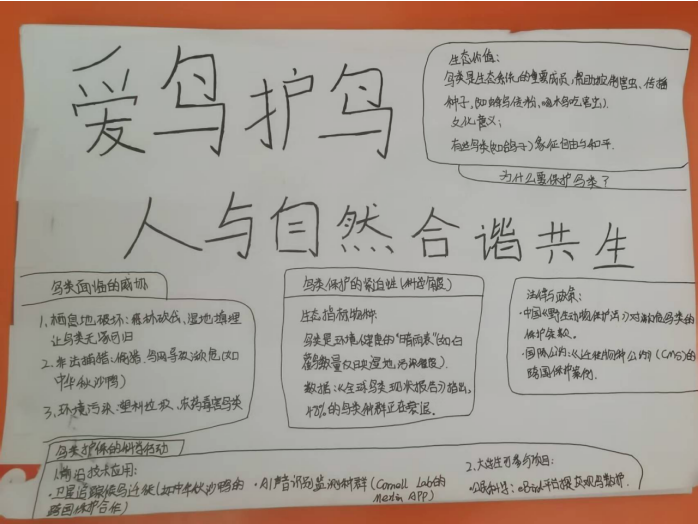 爱鸟护鸟
人与自然合谐共生
生态价值:
鸟类是生态系统的重要成员,帮助控制害虫、传播
种子,(如蜂鸟传粉,啄木鸟吃害虫).
文化意义:
有些鸟类(如鸽子)象征自由与和平.
为什么要保护鸟类?
鸟类面临的威胁
1、栖息地破坏:森林砍伐,湿地填埋
让鸟类无家可归
2、非法捕猎:偷猎、鸟网导致濒危(如
中华秋沙鸭)
3、环境污染:塑料垃圾、农药毒害鸟类
鸟类保护的紧迫性(科学角度)
生态指标物种:
鸟类是环境健康的"晴雨表"(如白
鹳数量反映湿地污染程度).
数据:《全球鸟类现状报告》指出,
48%的鸟类种群正在衰退.
法律与政策:
·中国《野生动物保护法》对濒危鸟类的
保护条款.
·国际公约:《迁徙物种公约》(CMS)的
跨国保护案例.
鸟类护保的科学行动
1.前沿技术应用:
·卫星追踪候鸟迁徙(如中华秋沙鸭的
跨国保护合作)
·AI声音识别监测种群(Cornell Lab的
Merlin APP)
2.大学生可参与项目:
·公民科学:eBird平台提交观鸟数据.